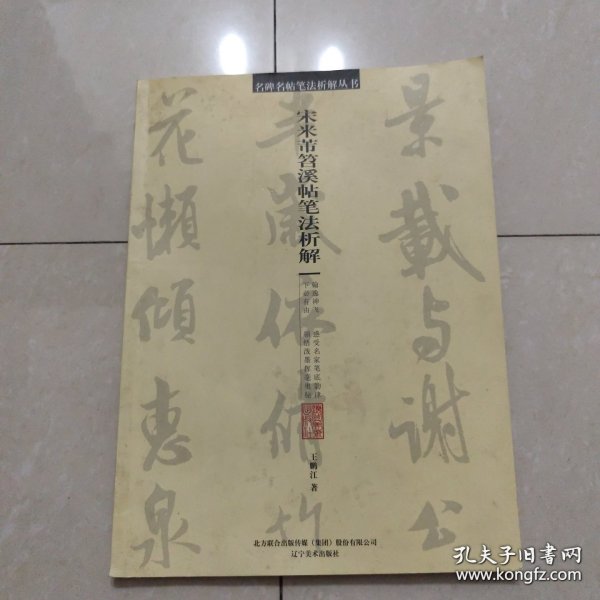 名碑名帖笔法析解丛书
宋米芾苕溪帖笔法析解
翰逸神飞 感受名家笔底韵律
下必有由 领悟泼墨挥毫奥秘
王鹏江 著
景载与谢公
半岁依修竹
花懒倾惠泉
北方联合出版传媒（集团）股份有限公司
辽宁美术出版社
孔夫子旧书网
www.kongfz.com